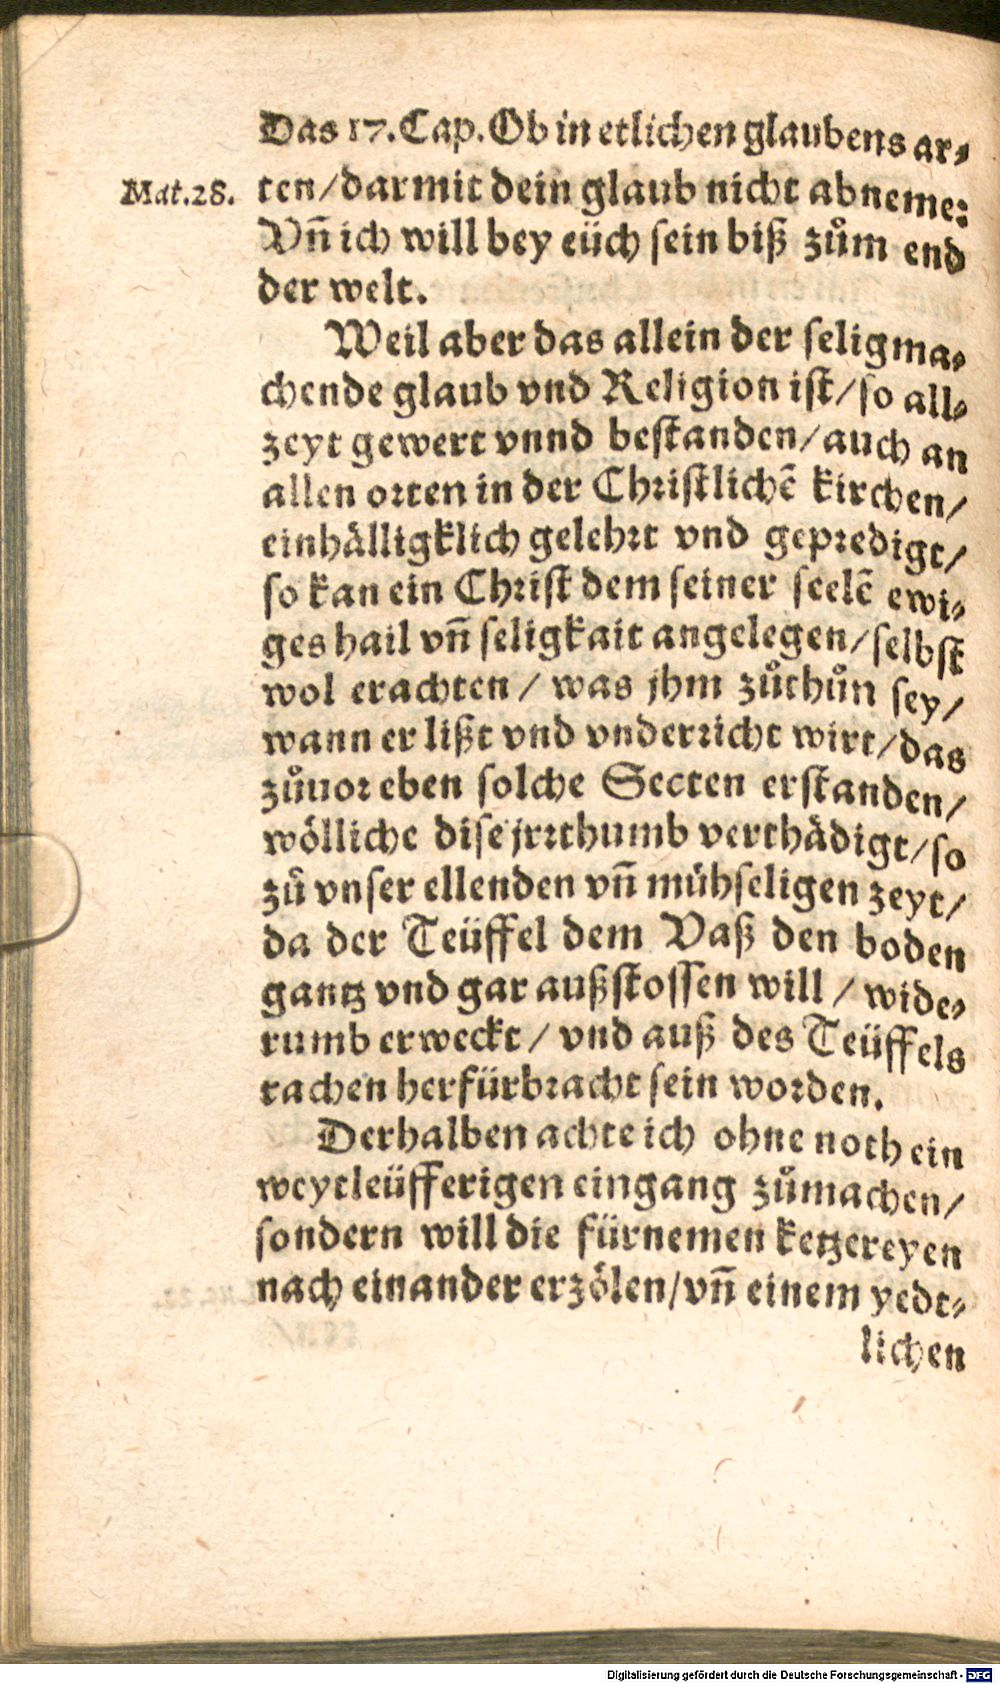 Das 17. Cap. Ob in etlichen glaubens ar⸗
Mat.28.
ten/darmit dein glaub nicht abneme:
Vñ ich will bey eüch sein biß zům end
der welt.
Weil aber das allein der seligma⸗
chende glaub vnd Religion ist/so all⸗
zeyt gewert vnnd bestanden/auch an
allen orten in der Christlichẽ kirchen/
einhälligklich gelehrt vnd gepredigt/
so kan ein Christ dem seiner seelẽ ewi⸗
ges hail vñ seligkait angelegen/selbst
wol erachten / was jhm zůthůn sey/
wann er lißt vnd vnderricht wirt/das
zůuor eben solche Secten erstanden/
wölliche dise jrrthumb verthädigt/so
zů vnser ellenden vñ mühseligen zeyt/
da der Teüffel dem Vaß den boden
gantz vnd gar außstossen will / wide⸗
rumb erweckt / vnd auß des Teüffels
rachen herfürbracht sein worden.
Derhalben achte ich ohne noth ein
weytleüfferigen eingang zůmachen/
sondern will die fürnemen ketzereyen
nach einander erzölen/vñ einem yedt⸗
lichen
Digitalisierung gefördert durch die Deutsche Forschungsgemeinschaft - DFG